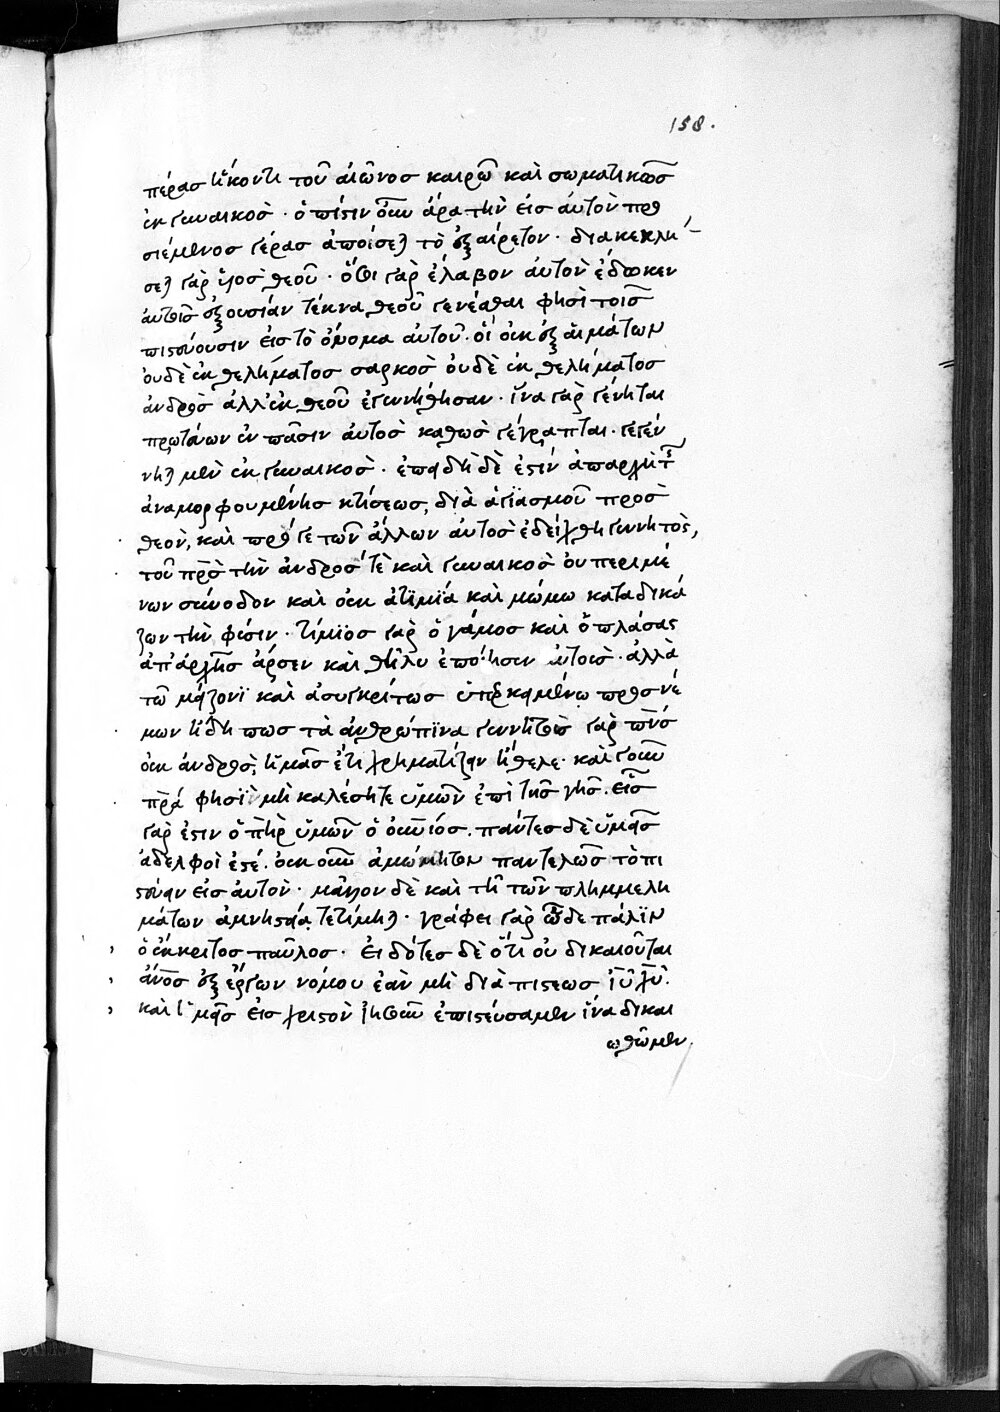 158.
πέρας ἥκοντι τοῦ αἰῶνος καιρῶ καὶ σωματικῶς
ἐκ γυναικὸς · ὁ πίστιν οὖν ἄρα τὴν εἰς αὐτὸν προ
σιέμενος γέρας ἀποίσεται τὸ ἐξαίρετον · διακεκλή
σεται γὰρ υἱὸς θεοῦ · ὅσοι γὰρ ἔλαβον αὐτὸν ἔδωκεν
αὐτοῖς ἐξουσίαν τέκνα θεοῦ γενέσθαι φησὶ τοῖς
πιστεύουσιν εἰς τὸ ὄνομα αὐτοῦ · οἳ οὐκ ἐξ αἱμάτων
οὐδὲ ἐκ θελήματος σαρκὸς οὐδὲ ἐκ θελήματος
ἀνδρὸς ἀλλ' ἐκ θεοῦ ἐγεννήθησαν · ἵνα γὰρ γένηται
πρωτεύων ἐν πᾶσιν αὐτὸς καθὼς γέγραπται · γεγέν
νηται μὲν ἐκ γυναικὸς · ἐπειδὴ δέ ἐστιν ἀπαρχὴ τῆς
ἀναμορφουμένης κτίσεως, διὰ ἁγϊασμοῦ πρὸς
θεὸν, καὶ πρό γε τῶν ἄλλων αὐτὸς ἐδείχθη γεννητὸς,
τοῦ πρς τὴν ἀνδρός τὲ καὶ γυναικὸς οὐ περιμέ
νων σύνοδον καὶ οὐκ ἀτϊμία καὶ μώμω καταδικά
ζων τὴν φύσιν · τίμϊος γὰρ ὁ γάμος καὶ ὁ πλάσας
ἀπ' ἀρχῆς ἄρσεν καὶ θῆλυ ἐποίησεν αὐτοὺς · ἀλλὰ
τῶ μείζονϊ καὶ ἀσυγκρίτως ὑπερκειμένω προσνέ
μων ἤδη πως τὰ ἀνθρώπϊνα γεννητοὺς γὰρ πνς
οὐκ ἀνδρὸς, ἡμᾶς ἔτι χρηματίζειν ἤθελε · καὶ γοῦν
πρα φησῒ μὴ καλέσητε ὑμῶν ἐπὶ τῆς γῆς · εἷς
γάρ ἐστιν ὁ πηρ ὑμῶν ὁ οὐνιος · πάντες δὲ ὑμεῖς
ἀδελφοὶ ἐστέ · οὐκ οὖν ἀμώμητον παντελῶς τὸ πι
στεύειν εἰς αὐτὸν · μᾶλλον δὲ καὶ τῆ τῶν πλημμελη
μάτων ἀμνηστία τετίμηται · γράφει γὰρ ὧδε πάλϊν
ὁ ἔκκριτος παῦλος · εἰδότες δὲ ὅτι οὐ δικαιοῦται
ἄνος ἐξ ἔργων νόμου ἐὰν μὴ διὰ πίστεως ἰυ χυ ·
καὶ ἡμεῖς εἰς χριστὸν ἰησοῦν ἐπιστεύσαμεν ἵνα δικαι
ωθῶμεν.